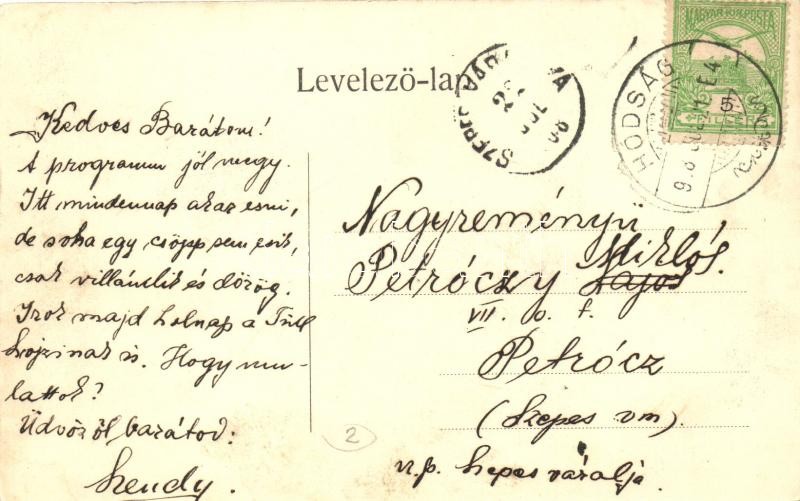 Levelező-lap
MAGYAR KIR. POSTA
HODSÁG
Kedves Barátom!
A programm jól megy.
Itt mindennap akar esni,
de soha egy csöpp sem esik,
csak villámlik és dörög.
Irok majd holnap a
is. Hogy mu-
lattok?
Üdvözöl barátod:
Szendy.
Nagyreményü
Miklós.
Petróczy Lajos
VII. o. t.
Petrócz
(Szepes vm).
u.p. Szepesváralja.
2